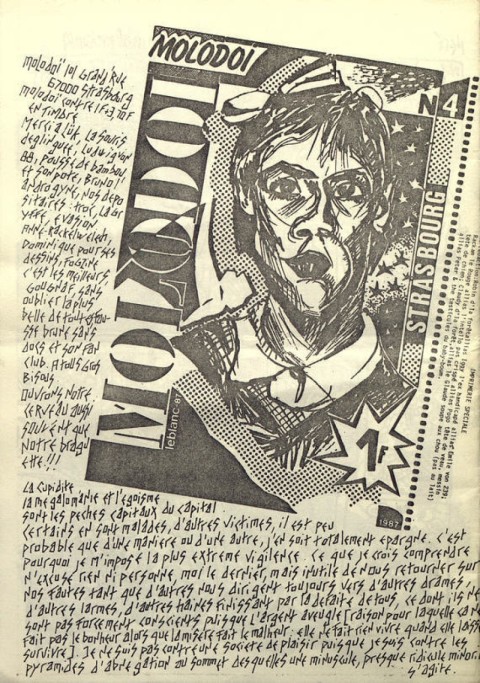 molodoï 101 Grand'Rue
67000 Strasbourg
molodoï contre 1F+3,70F
en timbre
Merci à Luc, La souris
deglinguée, Ludwig von
88, Pousse de bambou
et son pote, Bruno l'
androgyne, nos dépo
sitaires : Troc, La gr
yffe, evasion
Anne, Raxel wellen,
Dominique pour ses
dessins, Fogzine
c'est les meilleurs
GOUGNAF sans
oublier la plus
belle de toute
sse brune sans
docs et son fan
club. A tous gros
Bisous
ouvrons notre
cerveau aussi
souvent que
notre bragu
ette!!!
MOLODOÏ
MOLODOÏ
N4
STRASBOURG
leblanc.ar
1F
1987
IMPRIMERIE SPECIALE
La cupidite
la megalomanie et l'egoisme
sont les peches capitaux du capital.
Certains en sont malades, d'autres victimes, il est peu
probable que d'une maniere ou d'une autre, j'en soit totalement epargne. C'est
pourquoi je m'impose la plus extreme vigilence. Ce que je crois comprendre
n'excuse rien ni personne, moi le dernier, mais inutile de nous retourner sur
nos fautes tant que d'autres nous dirigent toujours vers d'autres drames,
d'autres larmes, d'autres haines finissant par la defaite de tous, ce dont ils ne
sont pas forcement conscients puisque l'argent aveugle [raison pour laquelle ça ne
fait pas le bonheur alors que la misere fait le malheur : elle ne fait rien vivre quand elle laisse
survivre]. Je ne suis pas contre une societe de plaisir puisque je suis contre les
pyramides d'abnegation au sommet desquelles une minuscule, presque ridicule minori
s'agite.